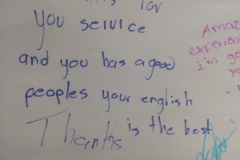 for
You service
and you has a good
peoples your english
is the best
Thanks
Amaz
experien
I'm go